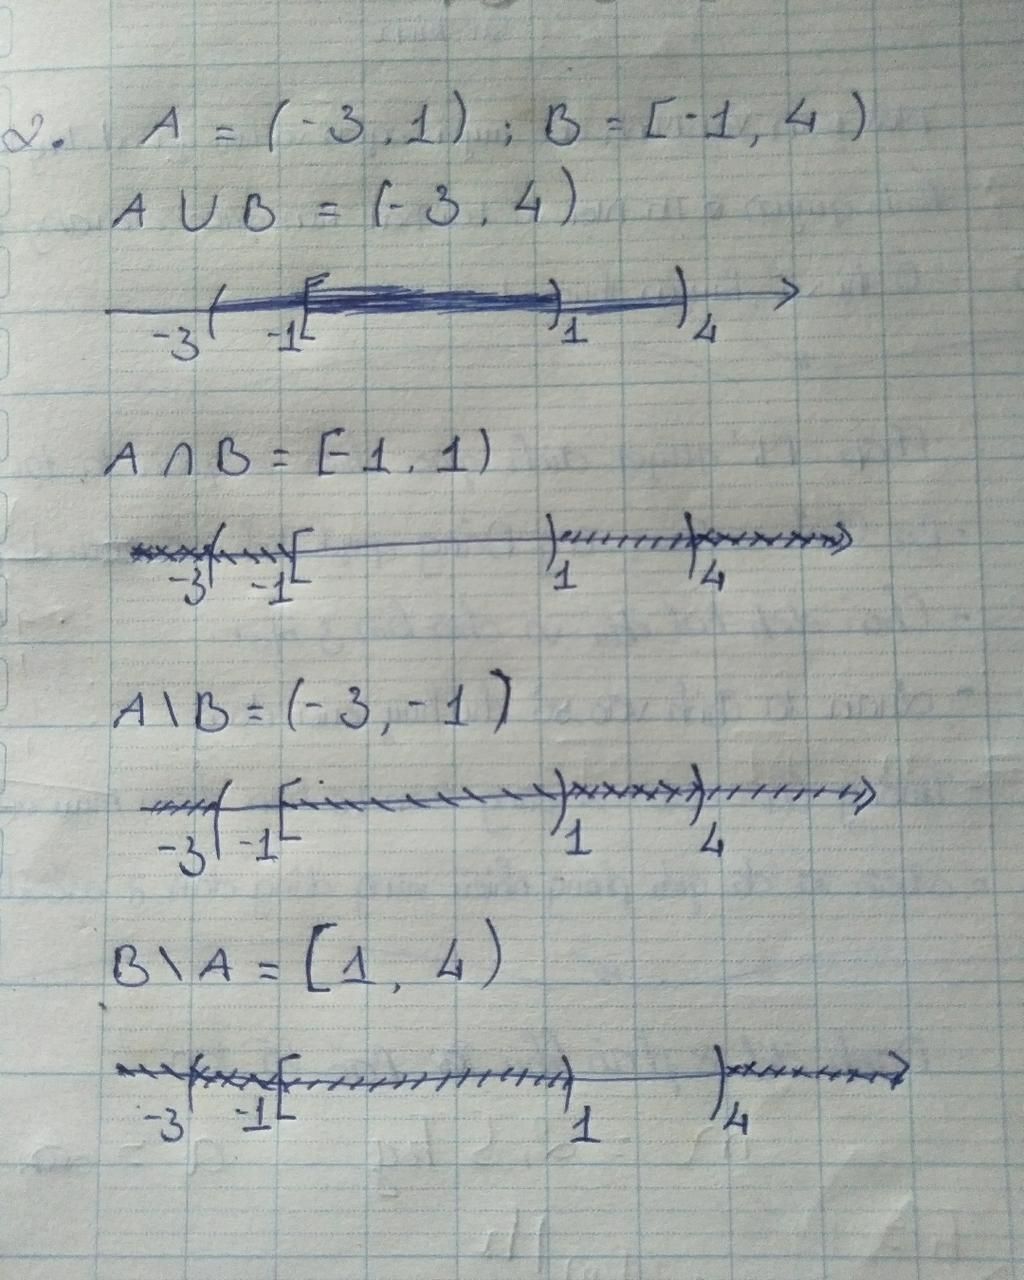 2. A = (-3, 1) ; B = [-1, 4)
A ∪ B = (-3, 4)
-3 -1 1 4
A ∩ B = [-1, 1)
-3 -1 1 4
A \ B = (-3, -1)
-3 -1 1 4
B \ A = [1, 4)
-3 -1 1 4